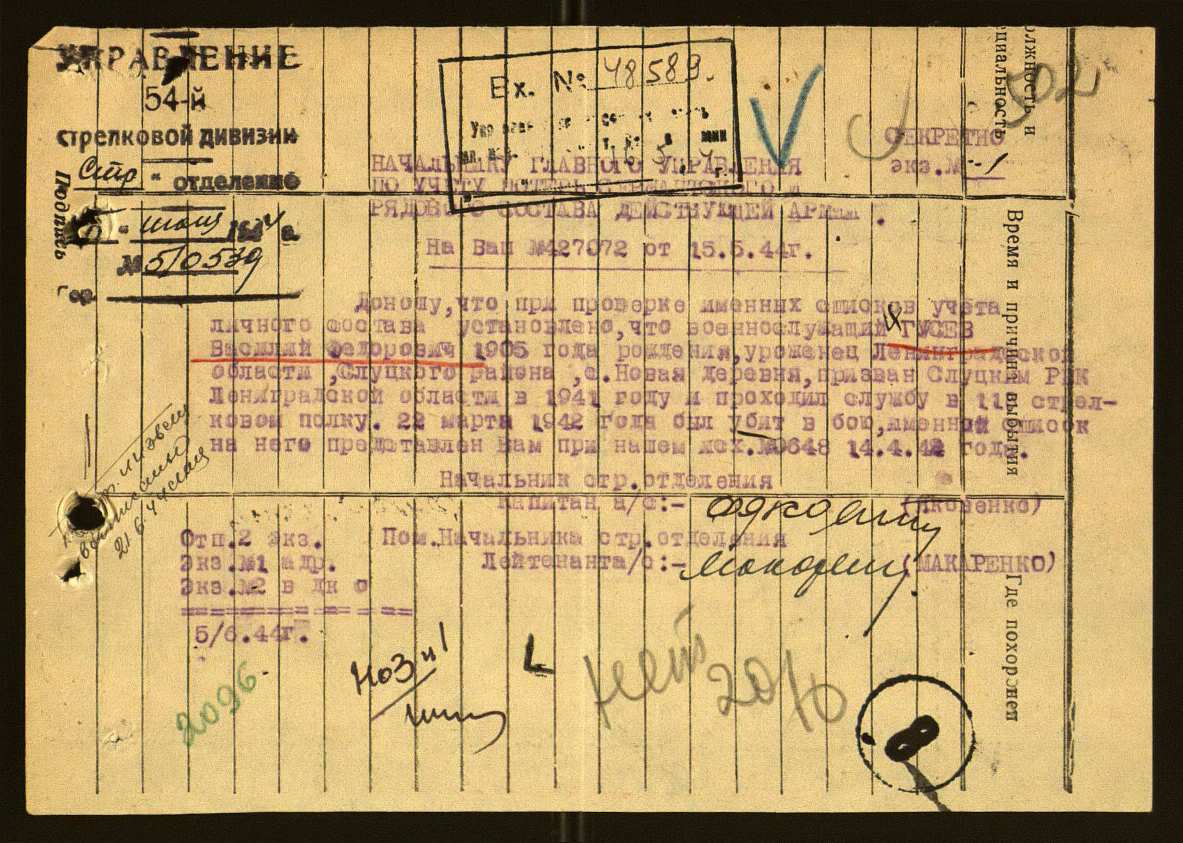 УПРАВЛЕНИЕ
54-й
стрелковой дивизии
Стр " отделение
№ 510539
Подпись
Вх. № 48589.
502
СЕКРЕТНО
экз.№ 1
НАЧАЛЬНИКУ ГЛАВНОГО УПРАВЛЕНИЯ
ПО УЧЕТУ
РЯДОВОГО СОСТАВА ДЕЙСТВУЮЩЕЙ АРМИИ.
На Ваш №427072 от 15.5.44г.
Доношу,что при проверке именных списков учета
личного состава установлено,что военнослужащий ГУСЕВ
Василий Федорович 1905 года рождения,уроженец Ленинградской
области ,Слуцкого района ,с.Новая деревня,призван Слуцким РВК
Лениградской области в 1941 году и проходил службу в 118 стрел-
ковом полку. 22 марта 1942 года был убит в бою,именной список
на него представлен Вам при нашем исх.№0648 14.4.42 года.
Начальник стр.отделения
капитан а/с:- (Яковенко)
Отп.2 экз. Пом.Начальника стр.отделения
Экз.№1 адр. Лейтенанта/с:- (МАКАРЕНКО)
Экз.№2 в дк о
==============
5/6.44г.
2096.
нет
8
олжность и
ециальность
Время и причина выбытия
Где похоронен